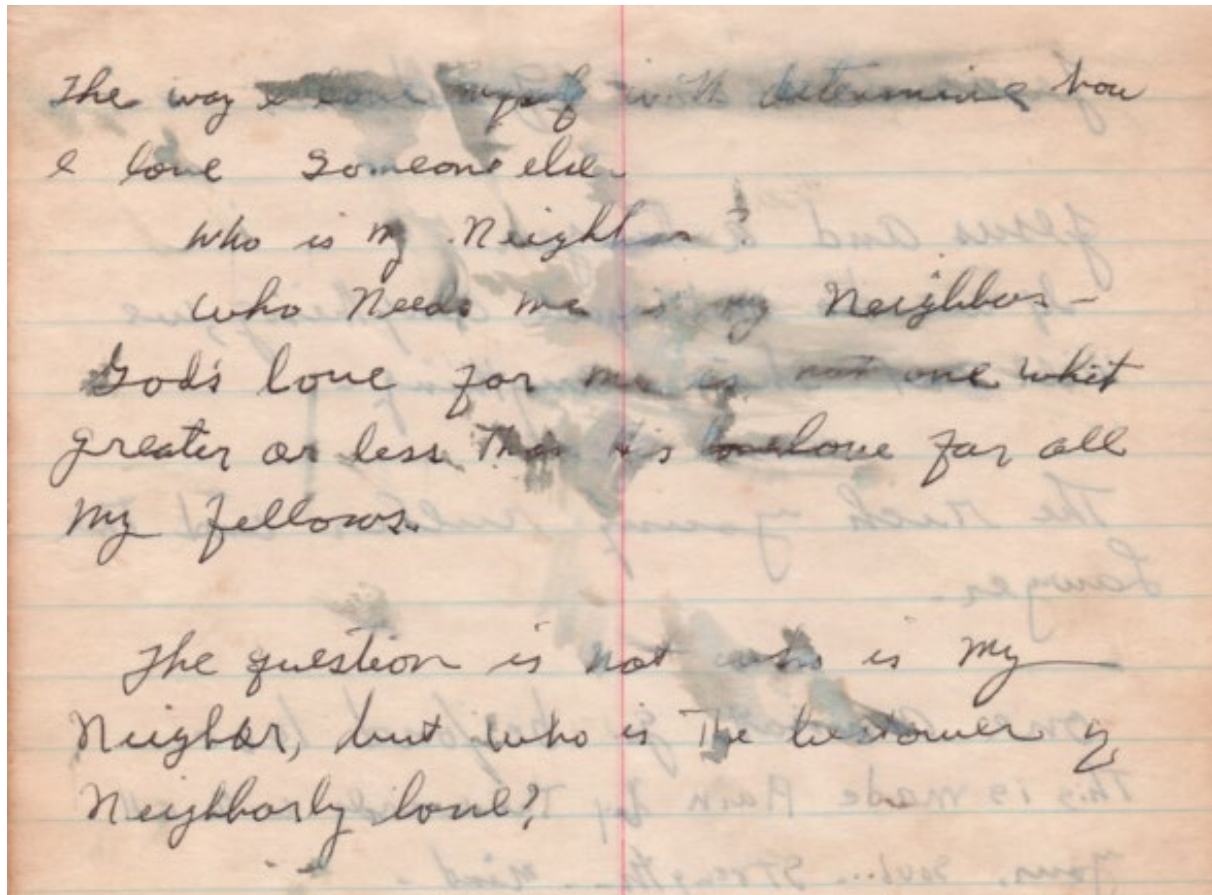 The way I love myself will determine how
I love Someone else-
Who is my Neighbor?
Who Needs me is my Neighbor-
God's love for me is not one whit
greater or less Than His love for all
My fellows.
The question is not who is My
Neighbor, but who is The bestower of
Neighborly love?